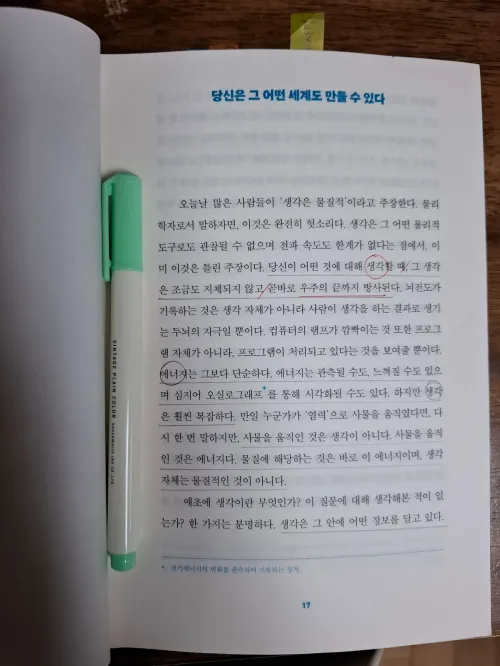 당신은 그 어떤 세계도 만들 수 있다
오늘날 많은 사람들이 '생각은 물질적'이라고 주장한다. 물리
학자로서 말하자면, 이것은 완전히 헛소리다. 생각은 그 어떤 물리적
도구로도 관찰될 수 없으며 전파 속도도 한계가 없다는 점에서, 이
미 이것은 틀린 주장이다. 당신이 어떤 것에 대해 생각할 때, 그 생각
은 조금도 지체되지 않고 곧바로 우주의 끝까지 방사된다. 뇌전도가
기록하는 것은 생각 자체가 아니라 사람이 생각을 하는 결과로 생기
는 두뇌의 자극일 뿐이다. 컴퓨터의 램프가 깜빡이는 것 또한 프로그
램 자체가 아니라, 프로그램이 처리되고 있다는 것을 보여줄 뿐이다.
에너지는 그보다 단순하다. 에너지는 관측될 수도, 느껴질 수도 있으
며 심지어 오실로그래프*를 통해 시각화될 수도 있다. 하지만 생각
은 훨씬 복잡하다. 만일 누군가가 '염력'으로 사물을 움직였다면, 다
시 한 번 말하지만, 사물을 움직인 것은 생각이 아니다. 사물을 움직
인 것은 에너지다. 물질에 해당하는 것은 바로 이 에너지이며, 생각
자체는 물질적인 것이 아니다.
애초에 생각이란 무엇인가? 이 질문에 대해 생각해본 적이 있
는가? 한 가지는 분명하다. 생각은 그 안에 어떤 정보를 담고 있다.
* 전기에너지의 변화를 관측하여 기록하는 장치.
17
VINTAGE PLAIN COLOR